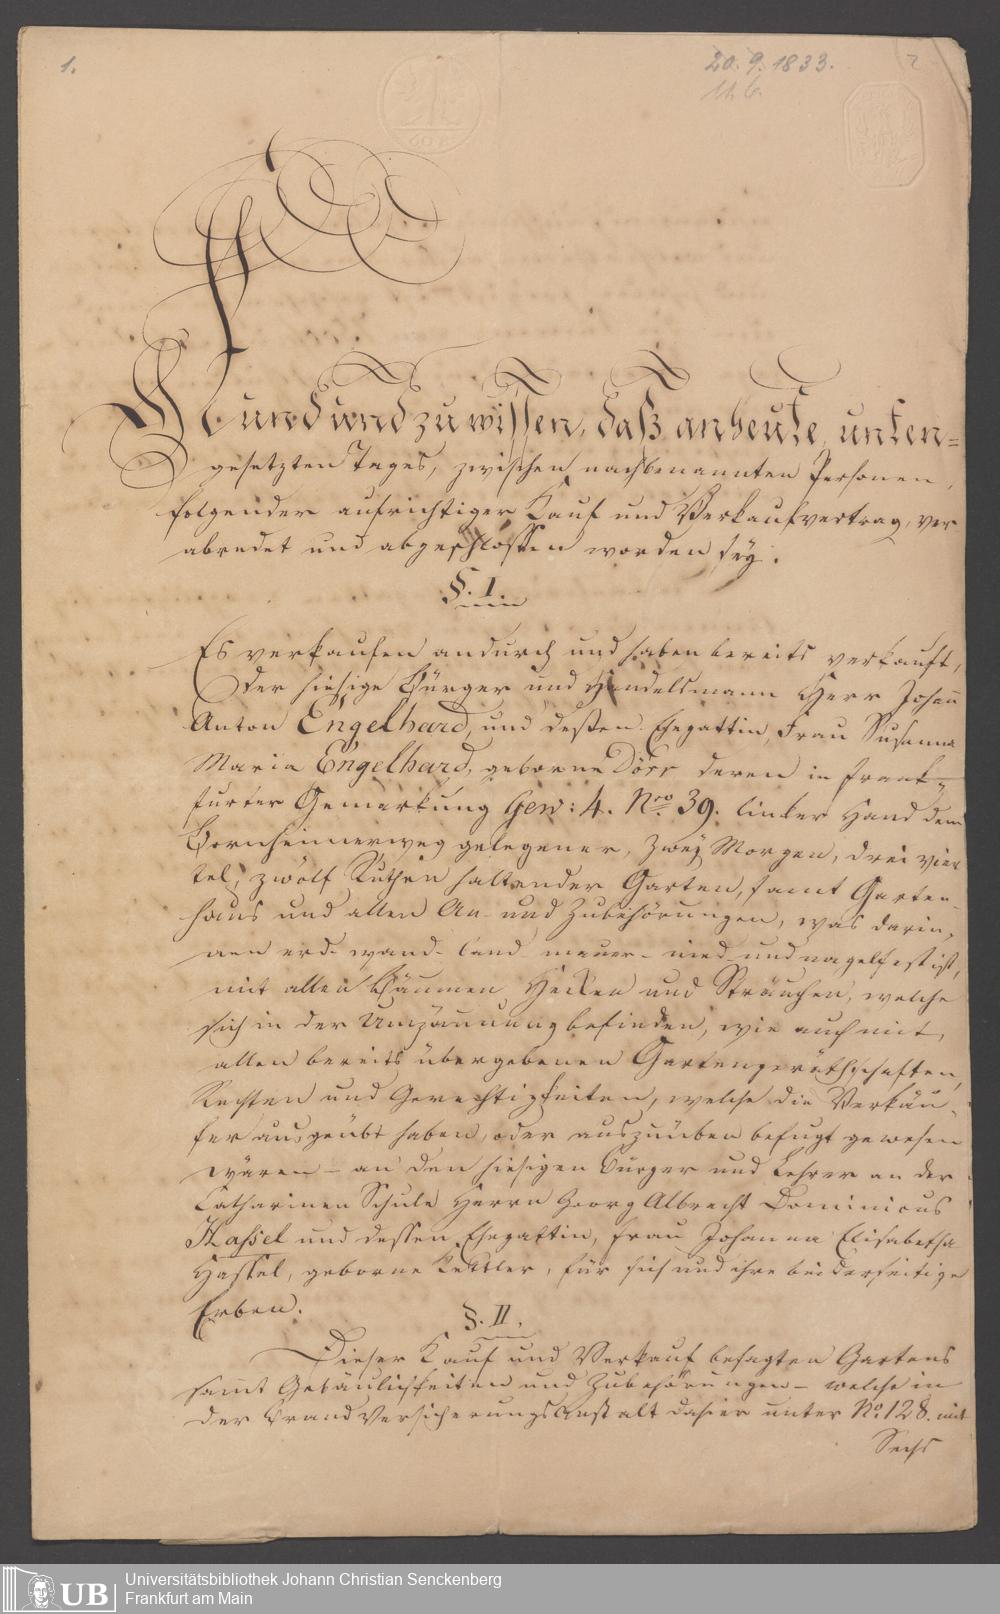 1.
20. 9. 1833.
2
Kund und zu wissen, daß anheute, unten=
gesetzten Tages, zwischen nachbenannten Personen,
folgender aufrichtiger Kauf und Verkaufvertrag, ver
abredet und abgeschlossen worden sey:
§. I.
Es verkaufen andurch und haben bereits verkauft,
der hiesige Bürger und Handelsmann Herr Johann
Anton Engelhard, und dessen Ehegattin, Frau Susanna
Maria Engelhard, geborne Dörr deren in Frank-
furter Gemarkung Gew: 4. Nro 39. linker Hand dem
Bornheimerweg gelegener, Zwey Morgen, drei vier
tel, zwölf Ruthen haltender Garten, samt Garten-
haus und allen An- und Zubehörungen, was darin,
nen erd- wand- band- mauer- nied- und nagelfest ist,
mit allen Bäumen Hecken und Sträuchen, welche
sich in der Umzäunung befinden, wie auch mit
allen bereits übergebenen Gartengeräthschaften,
Rechten und Gerechtigkeiten, welche die Verkäu-
fer ausgeübt haben, oder auszuüben befugt gewesen
wären – an den hiesigen Bürger und Lehrer an der
Catharinen Schule Herrn Georg Albrecht Dominicus
Hassel und dessen Ehegattin, Frau Johanna Elisabetha
Hassel, geborne Kessler, für sich und ihre beiderseitige
Erben.
§. II.
Dieser Kauf und Verkauf besagten Gartens
samt Gebäulichkeiten und Zubehörungen – welche in
der Brand Versicherungs Anstalt dahier unter No. 128. mit
Sechs
UB
Universitätsbibliothek Johann Christian Senckenberg
Frankfurt am Main